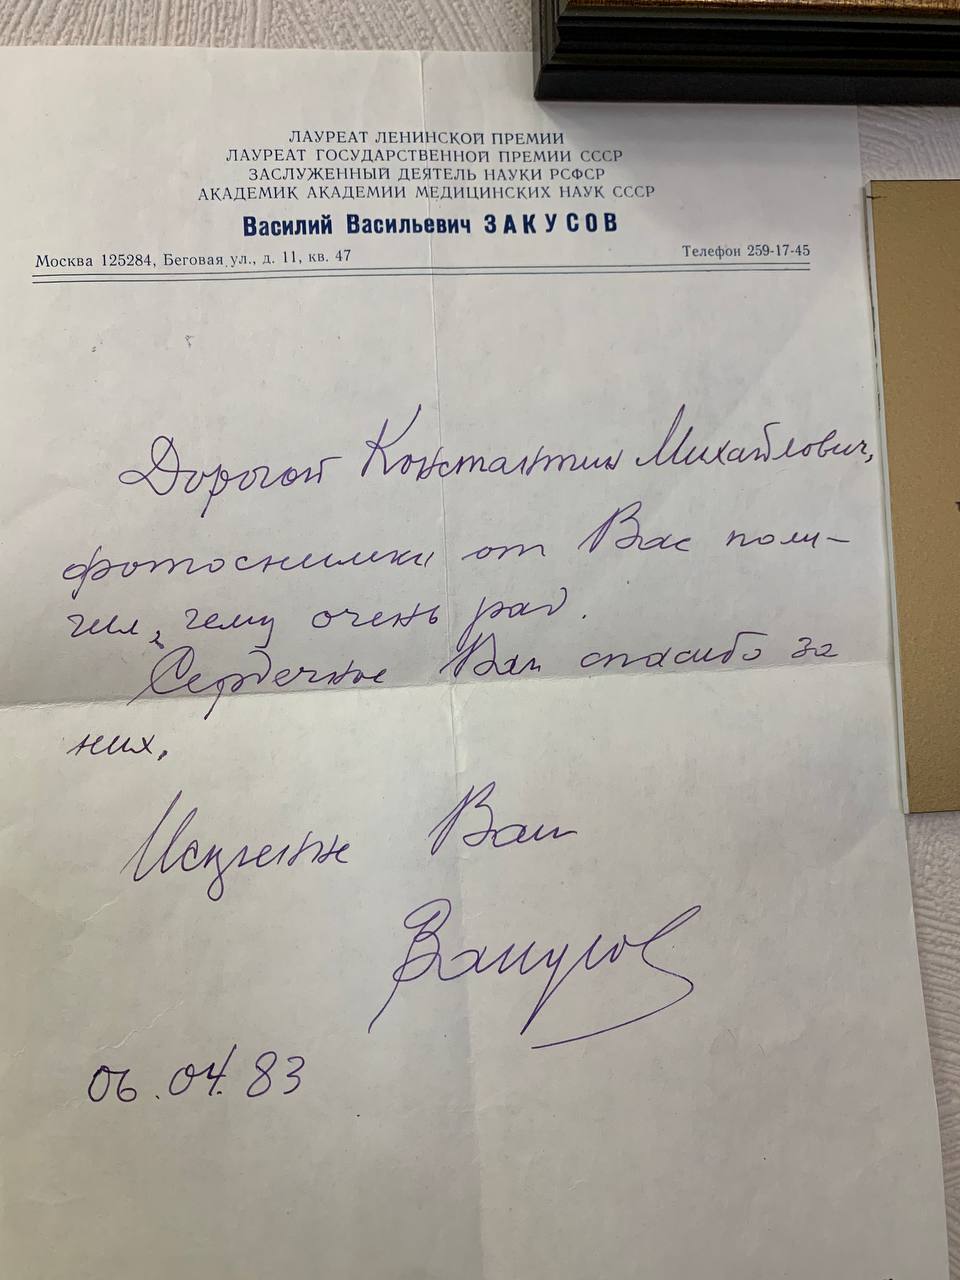 ЛАУРЕАТ ЛЕНИНСКОЙ ПРЕМИИ
ЛАУРЕАТ ГОСУДАРСТВЕННОЙ ПРЕМИИ СССР
ЗАСЛУЖЕННЫЙ ДЕЯТЕЛЬ НАУКИ РСФСР
АКАДЕМИК АКАДЕМИИ МЕДИЦИНСКИХ НАУК СССР
Василий Васильевич ЗАКУСОВ
Москва 125284, Беговая ул., д. 11, кв. 47 Телефон 259-17-45
Дорогой Константин Михайлович,
фотоснимки от Вас полу-
чил, чему очень рад.
Сердечное Вам спасибо за
них.
Искренне Ваш
Закусов
06.04.83